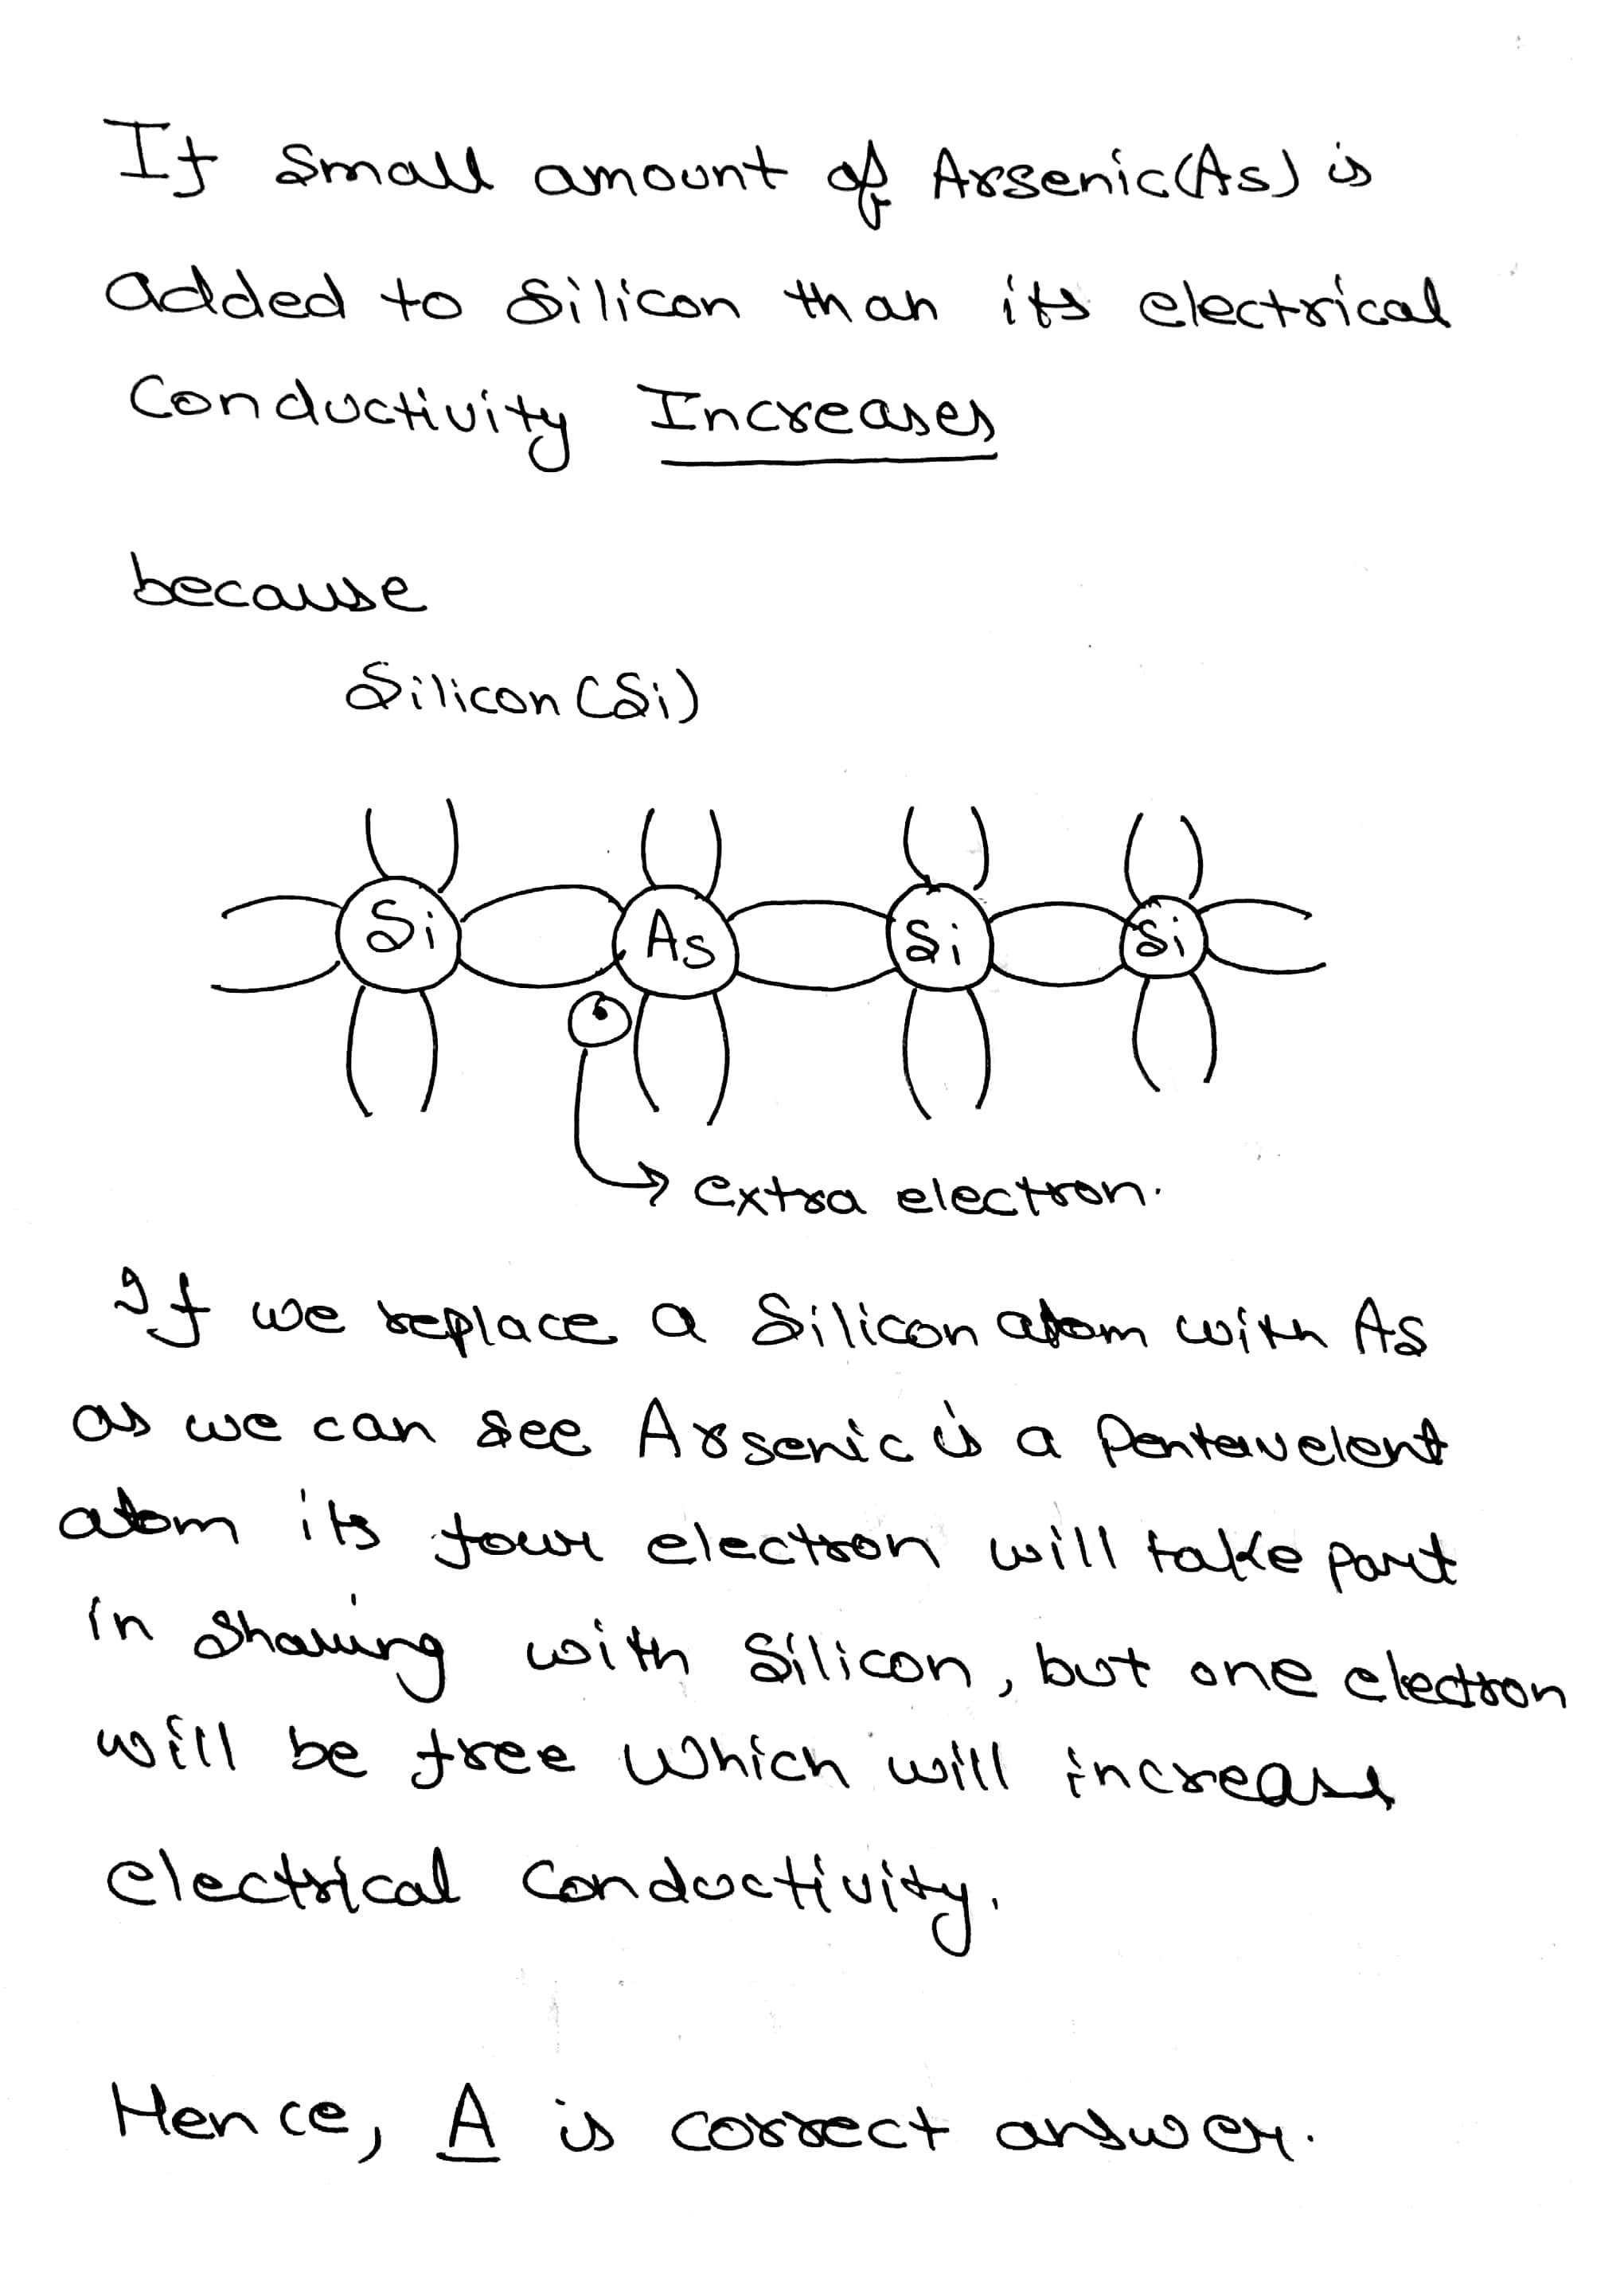 If small amount of Arsenic(As) is
added to Silicon than its electrical
Conductivity Increases
because
Silicon (Si)
Si As Si Si
extra electron.
If we replace a Silicon atom with As
as we can see Arsenic is a Pentavelent
atom its four electron will take part
in sharing with Silicon, but one electron
will be free which will increase
electrical conductivity.
Hence, A is correct answer.